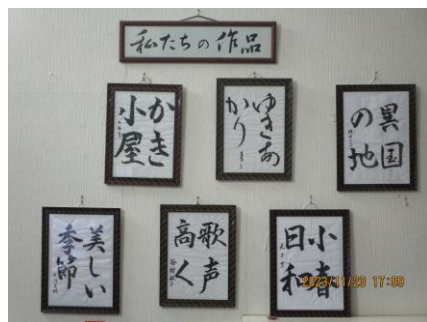 私たちの作品
かき
小屋
ゆきあ
かり
異国
の地
美しい
季節
歌声
高く
小春
日和
2023/11/23 17:59